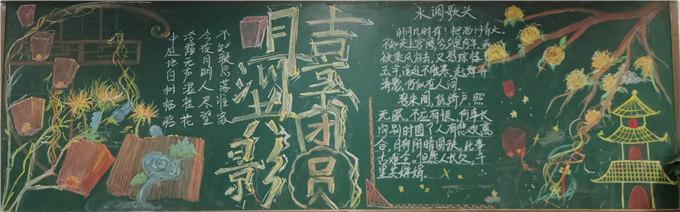 中庭地白树栖鸦
冷露无声湿桂花
今夜月明人尽望
不知秋思落谁家
团员
月
影
水调歌头
明月几时有?把酒问青天。
不知天上宫阙,今夕是何年。我
欲乘风归去,又恐琼楼
玉宇,高处不胜寒。起舞弄
清影,何似在人间
转朱阁,低绮户,照
无眠。不应有恨,何事长
向别时圆?人有悲欢离
合,月有阴晴圆缺,此事
古难全。但愿人长久,千
里共婵娟。